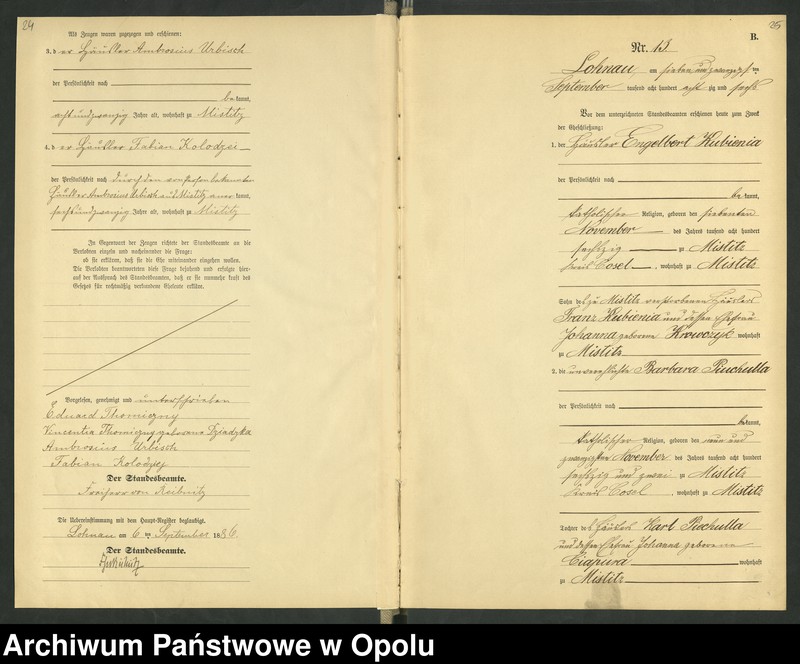 24
Als Zeugen waren zugezogen und erschienen:
3. der Häusler Ambrosius Urbisch
der Persönlichkeit nach
bekannt,
achtundzwanzig Jahre alt, wohnhaft zu Mistitz
4. der Häusler Fabian Kolodzei
der Persönlichkeit nach durch den von Person bekannten
Häusler Ambrosius Urbisch aus Mistitz anerkannt,
sechsundzwanzig Jahre alt, wohnhaft zu Mistitz
In Gegenwart der Zeugen richtete der Standesbeamte an die
Verlobten einzeln und nacheinander die Frage:
ob sie erklären, daß sie die Ehe miteinander eingehen wollen.
Die Verlobten beantworteten diese Frage bejahend und erfolgte hier-
auf der Ausspruch des Standesbeamten, daß er sie nunmehr kraft des
Gesetzes für rechtmäßig verbundene Eheleute erkläre.
Vorgelesen, genehmigt und unterschrieben
Eduard Thomiczny
Vincentia Thomiczny geborene Dziadzka
Ambrosius Urbisch
Fabian Kolodzej
Der Standesbeamte.
Freiherr von
Die Uebereinstimmung mit dem Haupt-Register beglaubigt.
Lohnau am 6 ten September 1886.
Der Standesbeamte.
25
B.
Nr. 13
Lohnau, am sieben und zwanzigsten
September tausend acht hundert achtzig und sechs
Vor dem unterzeichneten Standesbeamten erschienen heute zum Zweck
der Eheschließung:
1. der Häusler Engelbert Kubienia
der Persönlichkeit nach
bekannt,
katholischer Religion, geboren den siebenten
November des Jahres tausend acht hundert
sechszig zu Mistitz
Kreis Cosel, wohnhaft zu Mistitz
Sohn des zu Mistitz verstorbenen Häuslers
Franz Kubienia und dessen Ehefrau
Johanna geborene Krowczyk wohnhaft
zu Mistitz
2. die unverehelichte Barbara Piechulla
der Persönlichkeit nach
bekannt,
katholischer Religion, geboren den neun und
zwanzigsten November des Jahres tausend acht hundert
sechszig und zwei zu Mistitz
Kreis Cosel, wohnhaft zu Mistitz
Tochter des Häuslers Karl Piechulla
und dessen Ehefrau Johanna geborene
Ciapura wohnhaft
zu Mistitz
Archiwum Państwowe w Opolu